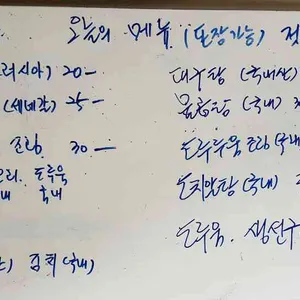 오늘의 메뉴 (포장가능)
러시아) 20-
대구탕 (국내산)
(세네갈) 25-
(국내)
조림 30-
도루묵 조림 (국내)
도루묵
국내
도치알탕 (국내)
도루묵. 생선구
(국내)